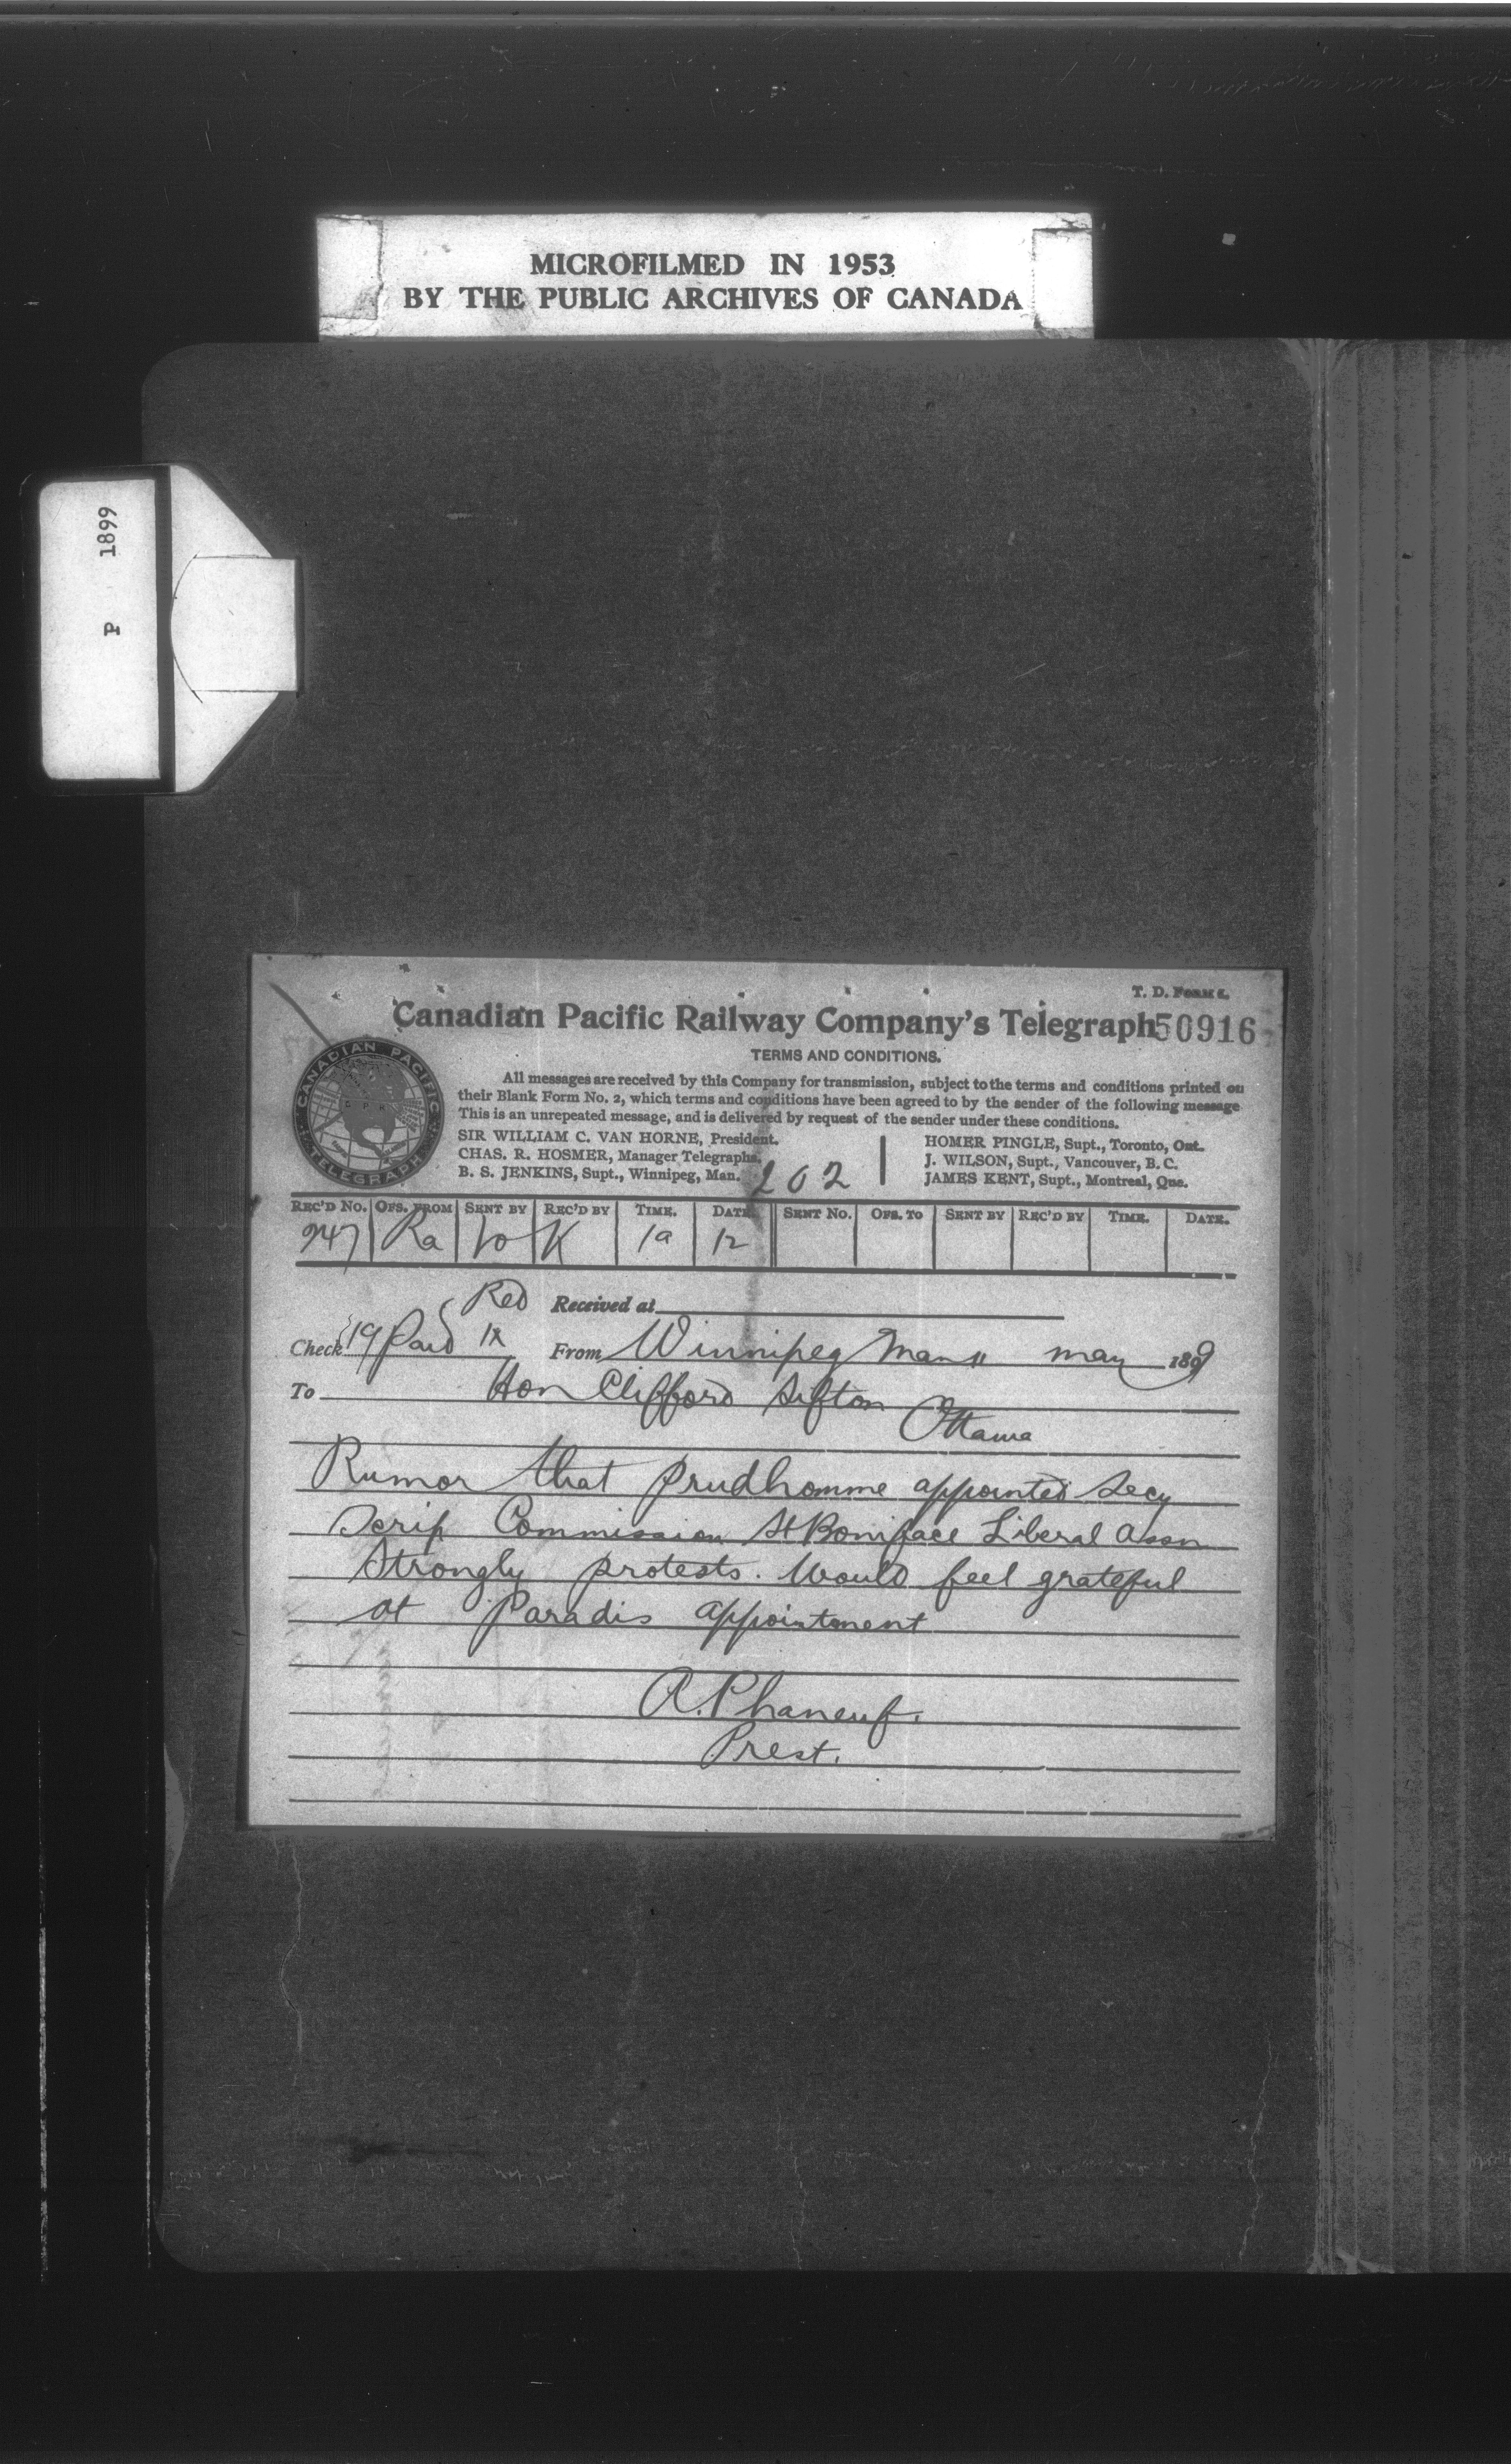 MICROFILMED IN 1953
BY THE PUBLIC ARCHIVES OF CANADA
P 1899
T. D. FORM
Canadian Pacific Railway Company's Telegraph 50916
TERMS AND CONDITIONS.
All messages are received by this Company for transmission, subject to the terms and conditions printed on
their Blank Form No. 2, which terms and conditions have been agreed to by the sender of the following message
This is an unrepeated message, and is delivered by request of the sender under these conditions.
SIR WILLIAM C. VAN HORNE, President.
CHAS. R. HOSMER, Manager Telegraphs.
B. S. JENKINS, Supt., Winnipeg, Man.
HOMER PINGLE, Supt., Toronto, Ont.
J. WILSON, Supt., Vancouver, B. C.
JAMES KENT, Supt., Montreal, Que.
CANADIAN PACIFIC
TELEGRAPH
202
REC'D No. OFS. FROM SENT BY REC'D BY TIME. DATE. SENT No. OFS. TO SENT BY REC'D BY TIME. DATE.
247 Ra K 1a 12
Red Received at
Check 19 Paid From Winnipeg Man 11 may 1899
To Hon Clifford Sifton
Ottawa
Rumor that Prudhomme appointed Secy
Scrip Commission St Boniface Liberal Assn
Strongly protests. Would feel grateful
at Paradis appointment
A. Phaneuf.
Prest.